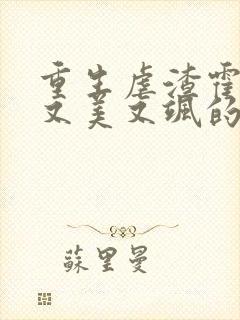 重生虐渣霍
又美又飒的
蘇里曼